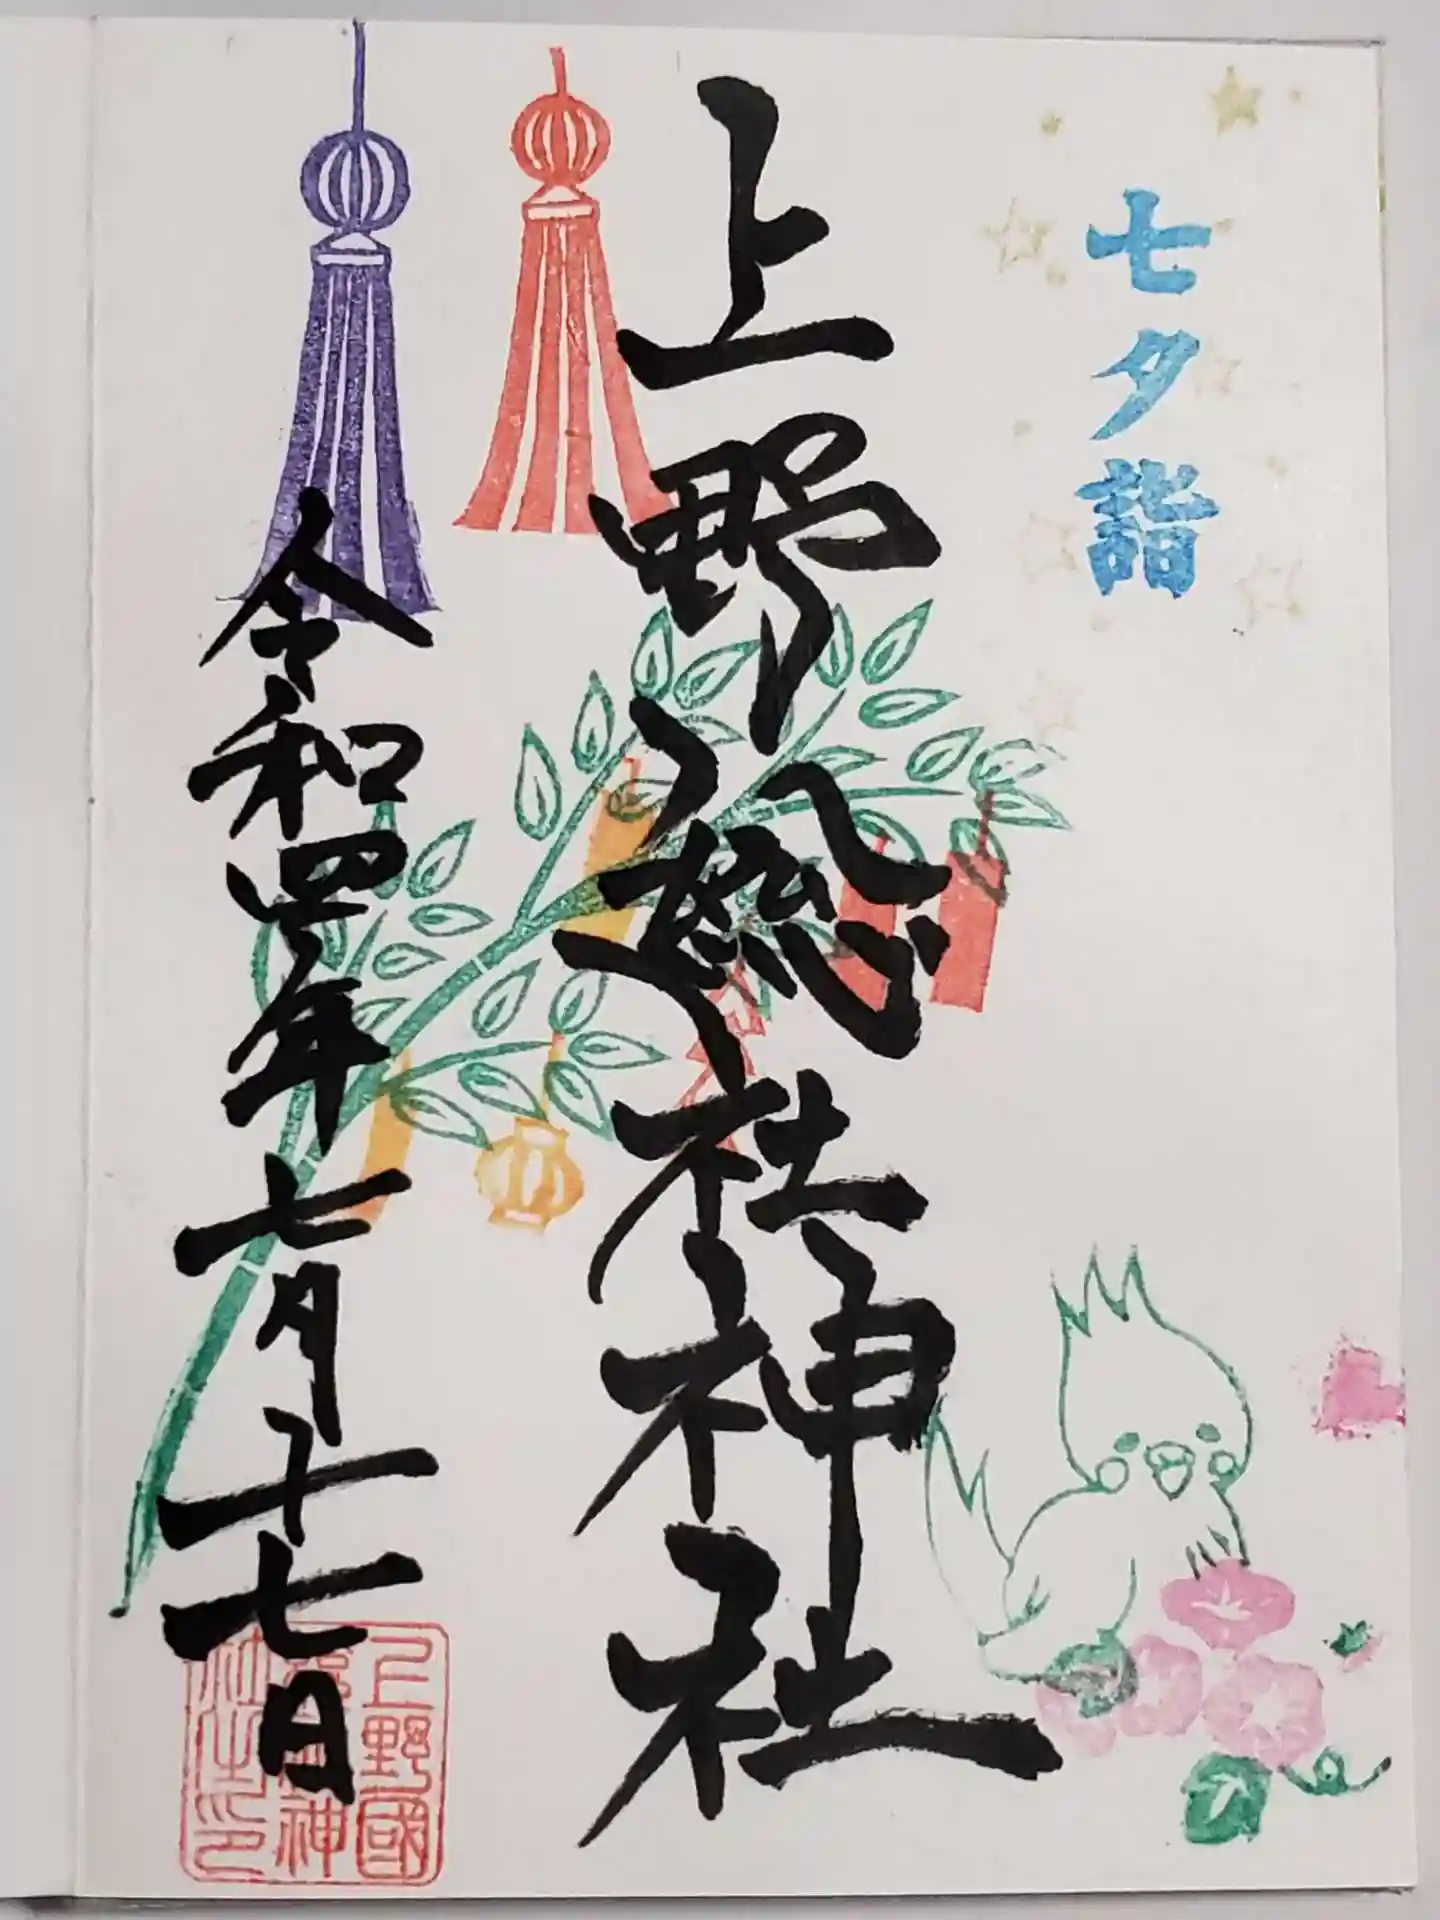 七夕詣
上野総社神社
令和四年七月十七日
上野國
神
社之印